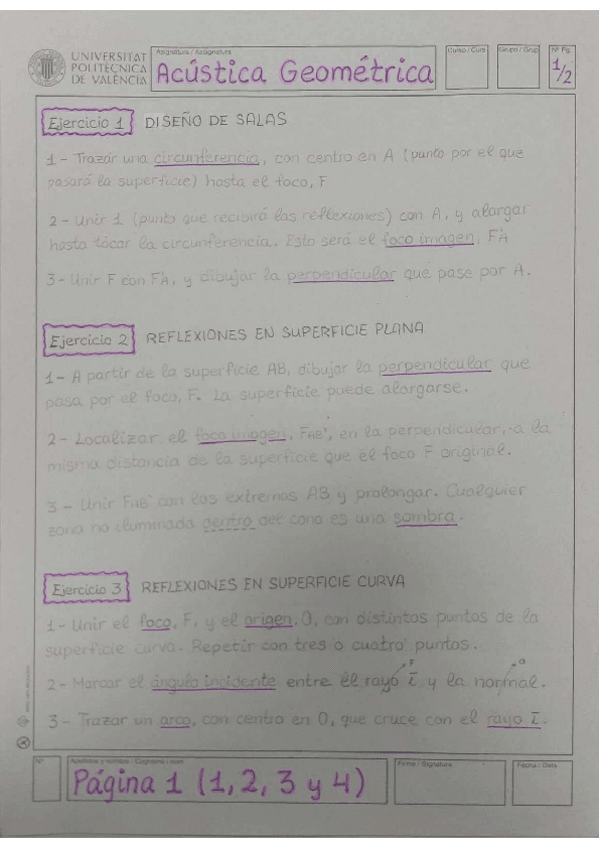 UNIVERSITAT
POLITÈCNICA
DE VALÈNCIA
Asignatura / Assignatura
Acústica Geométrica
Curso / Curs
Grupo / Grup
Nº Pg.
1/2
Ejercicio 1 DISEÑO DE SALAS
1 - Trazar una circunferencia, con centro en A (punto por el que
pasará la superficie) hasta el foco, F
2 - Unir 1 (punto que recibirá las reflexiones) con A, y alargar
hasta tocar la circunferencia. Esto será el foco imagen, F'A
3 - Unir F con F'A, y dibujar la perpendicular que pase por A.
Ejercicio 2 REFLEXIONES EN SUPERFICIE PLANA
1 - A partir de la superficie AB, dibujar la perpendicular que
pasa por el foco, F. La superficie puede alargarse.
2 - Localizar el foco imagen, FAB', en la perpendicular, a la
misma distancia de la superficie que el foco F original.
3 - Unir FAB' con los extremos AB y prolongar. Cualquier
zona no iluminada dentro del cono es una sombra.
Ejercicio 3 REFLEXIONES EN SUPERFICIE CURVA
1 - Unir el foco, F, y el origen, O, con distintos puntos de la
superficie curva. Repetir con tres o cuatro puntos.
F O
2 - Marcar el ángulo incidente entre el rayo i y la normal.
3 - Trazar un arco, con centro en O, que cruce con el rayo i.
Nº
Apellidos y nombre / Cognoms i nom
Página 1 (1, 2, 3 y 4)
Firma / Signatura
Fecha / Data